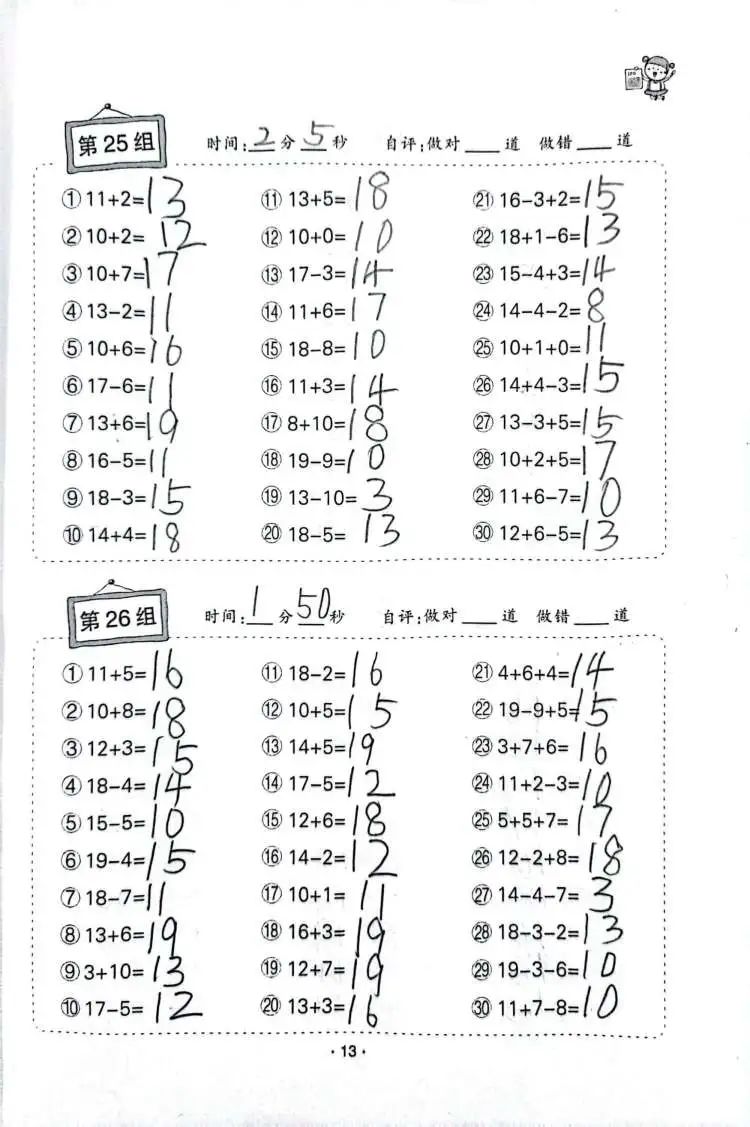 第25组 时间:2分5秒 自评:做对____道 做错____道
①11+2=13 ⑪13+5=18 ㉑16-3+2=15
②10+2=12 ⑫10+0=10 ㉒18+1-6=13
③10+7=17 ⑬17-3=14 ㉓15-4+3=14
④13-2=11 ⑭11+6=17 ㉔14-4-2=8
⑤10+6=16 ⑮18-8=10 ㉕10+1+0=11
⑥17-6=11 ⑯11+3=14 ㉖14+4-3=15
⑦13+6=19 ⑰8+10=18 ㉗13-3+5=15
⑧16-5=11 ⑱19-9=10 ㉘10+2+5=17
⑨18-3=15 ⑲13-10=3 ㉙11+6-7=10
⑩14+4=18 ⑳18-5=13 ㉚12+6-5=13
第26组 时间:1分50秒 自评:做对____道 做错____道
①11+5=16 ⑪18-2=16 ㉑4+6+4=14
②10+8=18 ⑫10+5=15 ㉒19-9+5=15
③12+3=15 ⑬14+5=19 ㉓3+7+6=16
④18-4=14 ⑭17-5=12 ㉔11+2-3=10
⑤15-5=10 ⑮12+6=18 ㉕5+5+7=17
⑥19-4=15 ⑯14-2=12 ㉖12-2+8=18
⑦18-7=11 ⑰10+1=11 ㉗14-4-7=3
⑧13+6=19 ⑱16+3=19 ㉘18-3-2=13
⑨3+10=13 ⑲12+7=19 ㉙19-3-6=10
⑩17-5=12 ⑳13+3=16 ㉚11+7-8=10
·13·